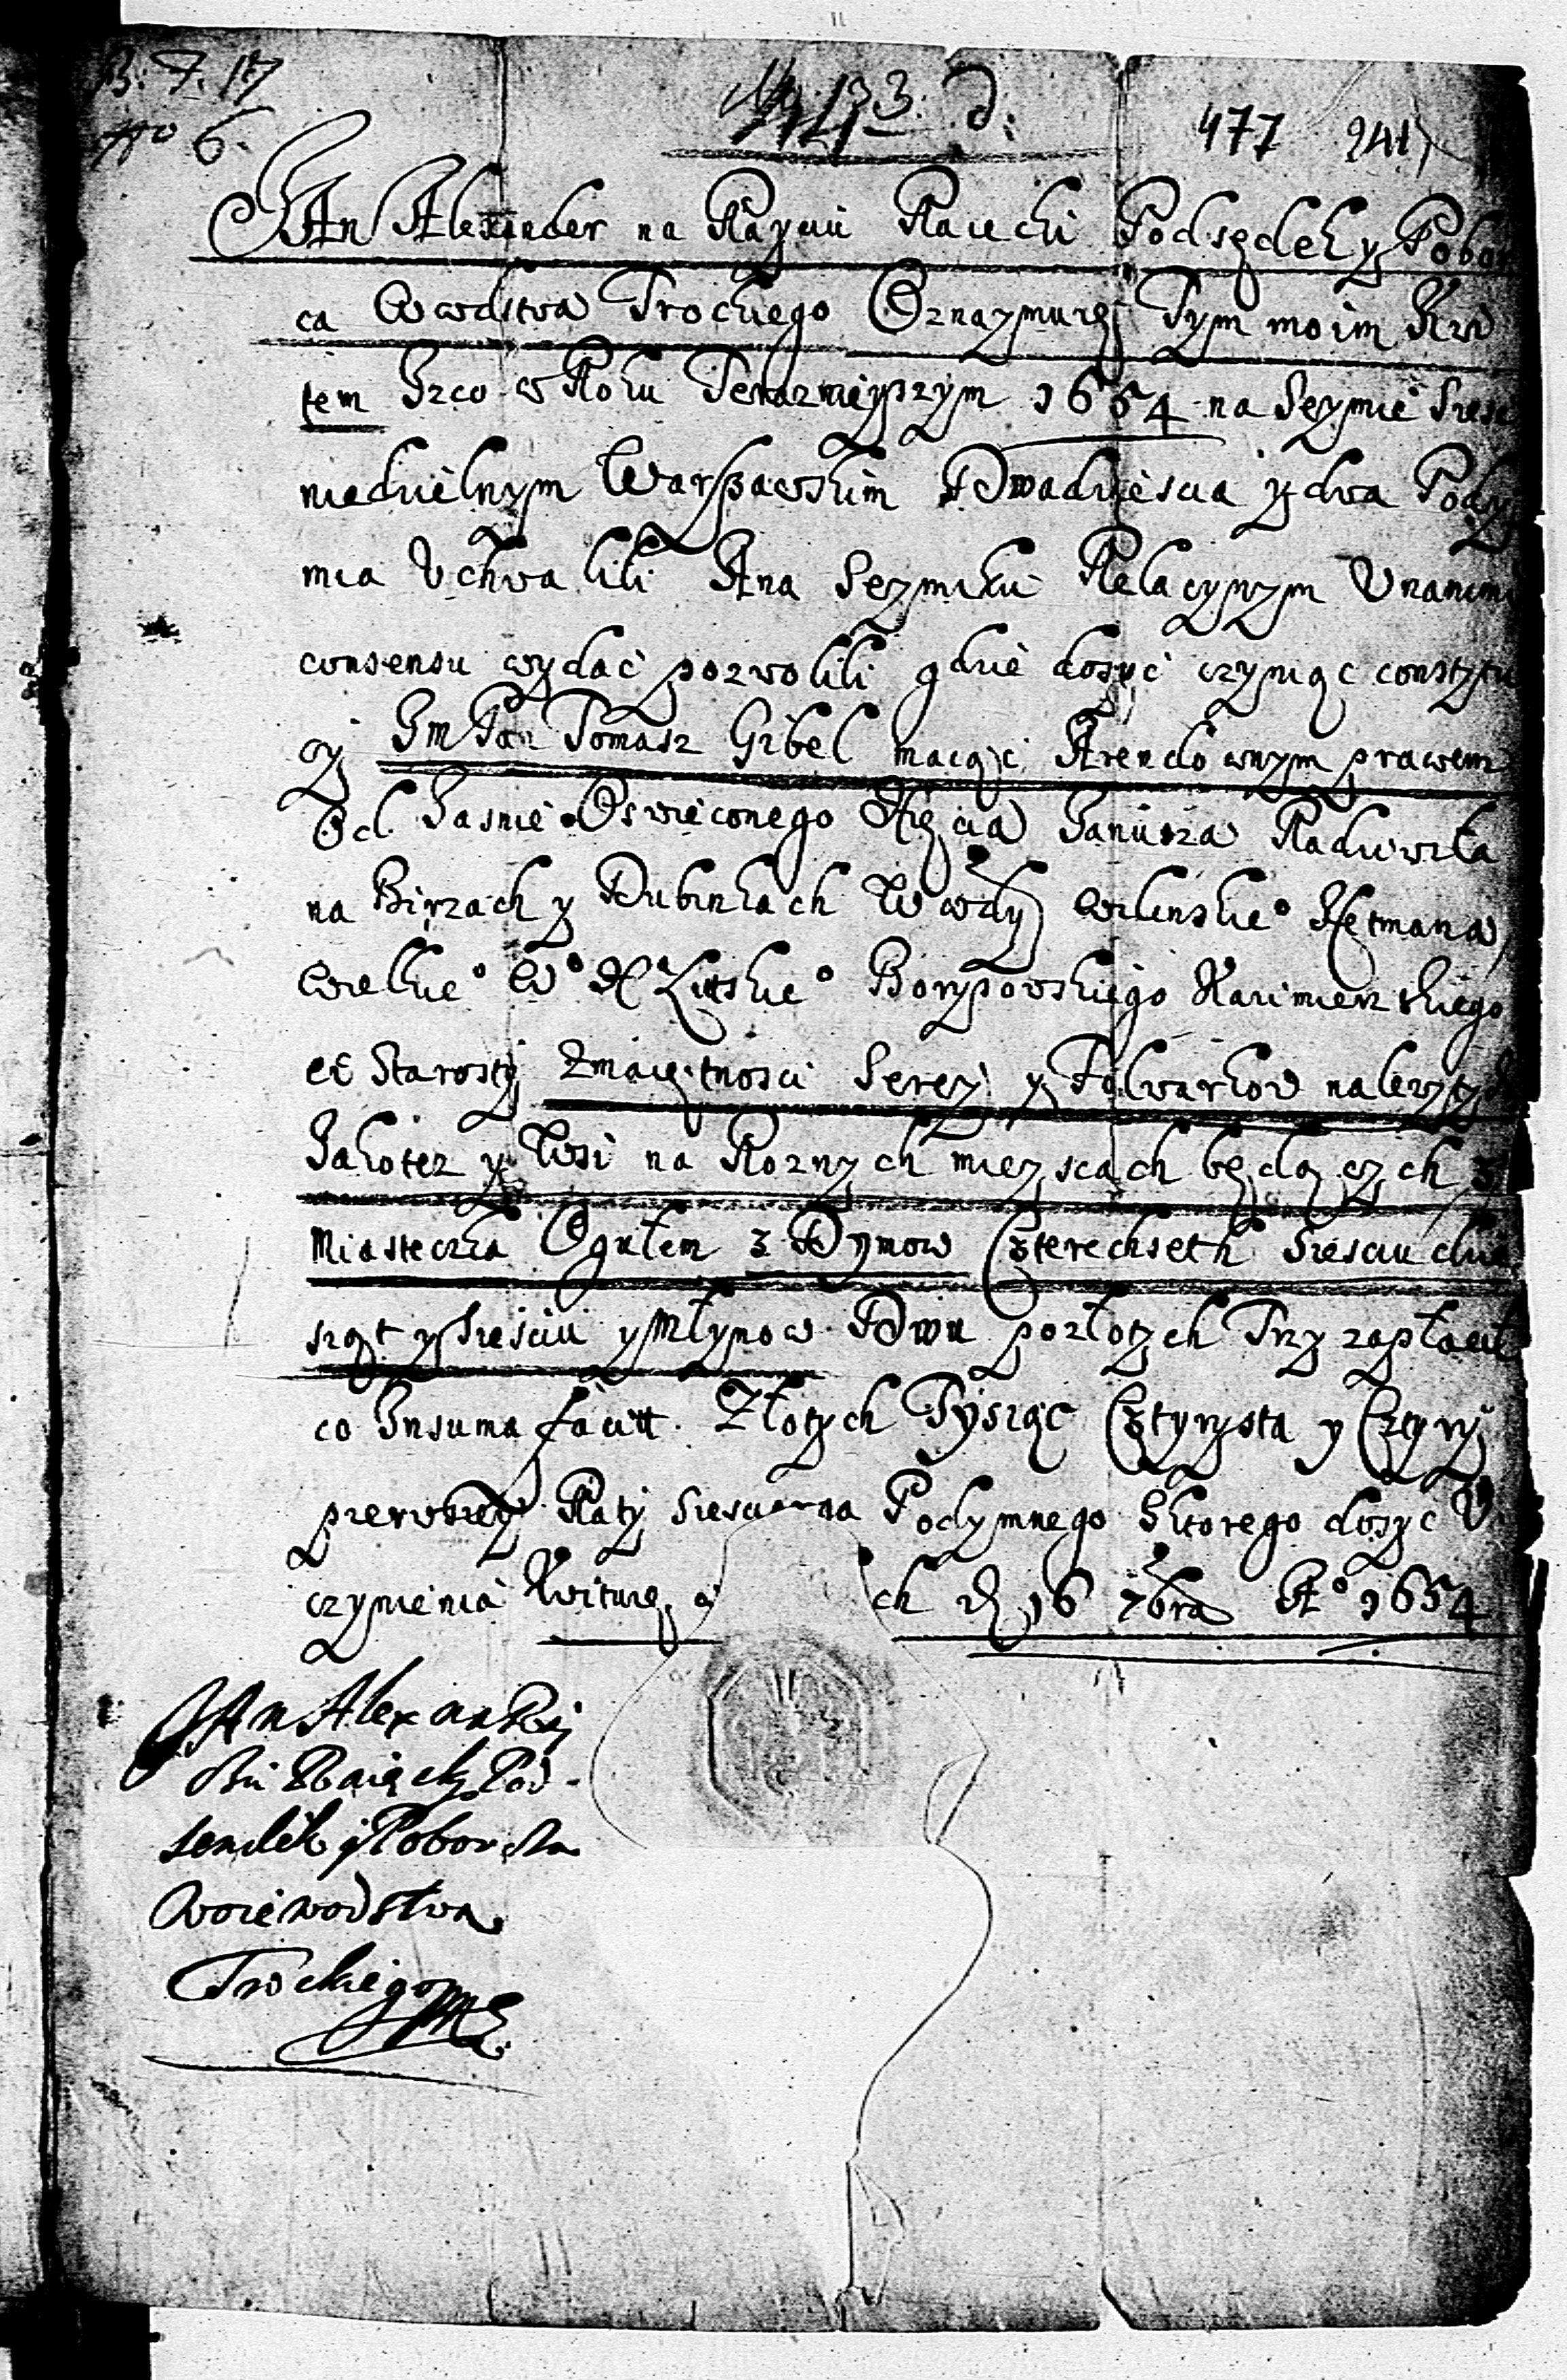 B: 7. 17
No 6.
No 133. d:
477 241
JAn Alexander na Raycu Raiecki Podsędek y Pobor
ca Wwdstwa Trockiego Oznaymuię Tym moim Kwi
tem Izco w Roku Teraznieyszym 1654 na Seymie Szesc
niedzielnym Warszawskim Dwadziescia y dwa Pody
mia Uchwalili Ana Seymiku Relacyinym Unanimi
consensu wydać pozwolili gdzie dosyć czyniąc constytu
cy Im Pan Tomasz Gibel maiąc Arendownym prawem
Od Jasnie Oswieconego Xięcia Janusza Radziwiła
na Birzach y Dubinkach Wwdy wilenskie° Hetmana
wielkie° W° X Litskie° Borysowskiego Kazimierskiego
ec Starosty Zmaiętnosci Serey y Folwarkow należytych
Jakotez y Wsi na Roznych mieyscach będących z
Miasteczka Ogułem z Dymow Czterechseth Szesciudzie
sząt y Szesciu y Młynow Dwu pozłotych Trzy zapłacił
co Insuma facitt. Złotych Tysiąc Cztyrysta y Cztyry
pierwszey Raty Podymnego Ktorego dosyć U
czynienia Kwituię 16 7bra A° 1654
JAn Alexander
Raiecky Pod-
sendek y Poborca
Woiewodstwa
Trockiego